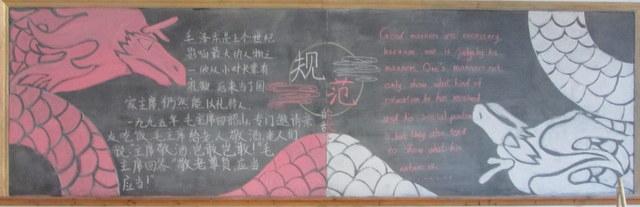 毛泽东是上个世纪
影响最大的人物之
一他从小时候就有
礼貌，后来当了国
家主席，仍然能以礼待人。
一九五九年毛主席回韶山，专门邀请亲
友吃饭，毛主席给老人敬酒，老人们
说"主席敬酒，岂敢岂敢！"毛
主席回答"敬老尊贤，应当
应当！"
规
范
Good manners are necessary
because one is judged by his
manners. One's manners not
only show what kind of
education he has received
and his social position
but they also tend
to show what his
nature is.